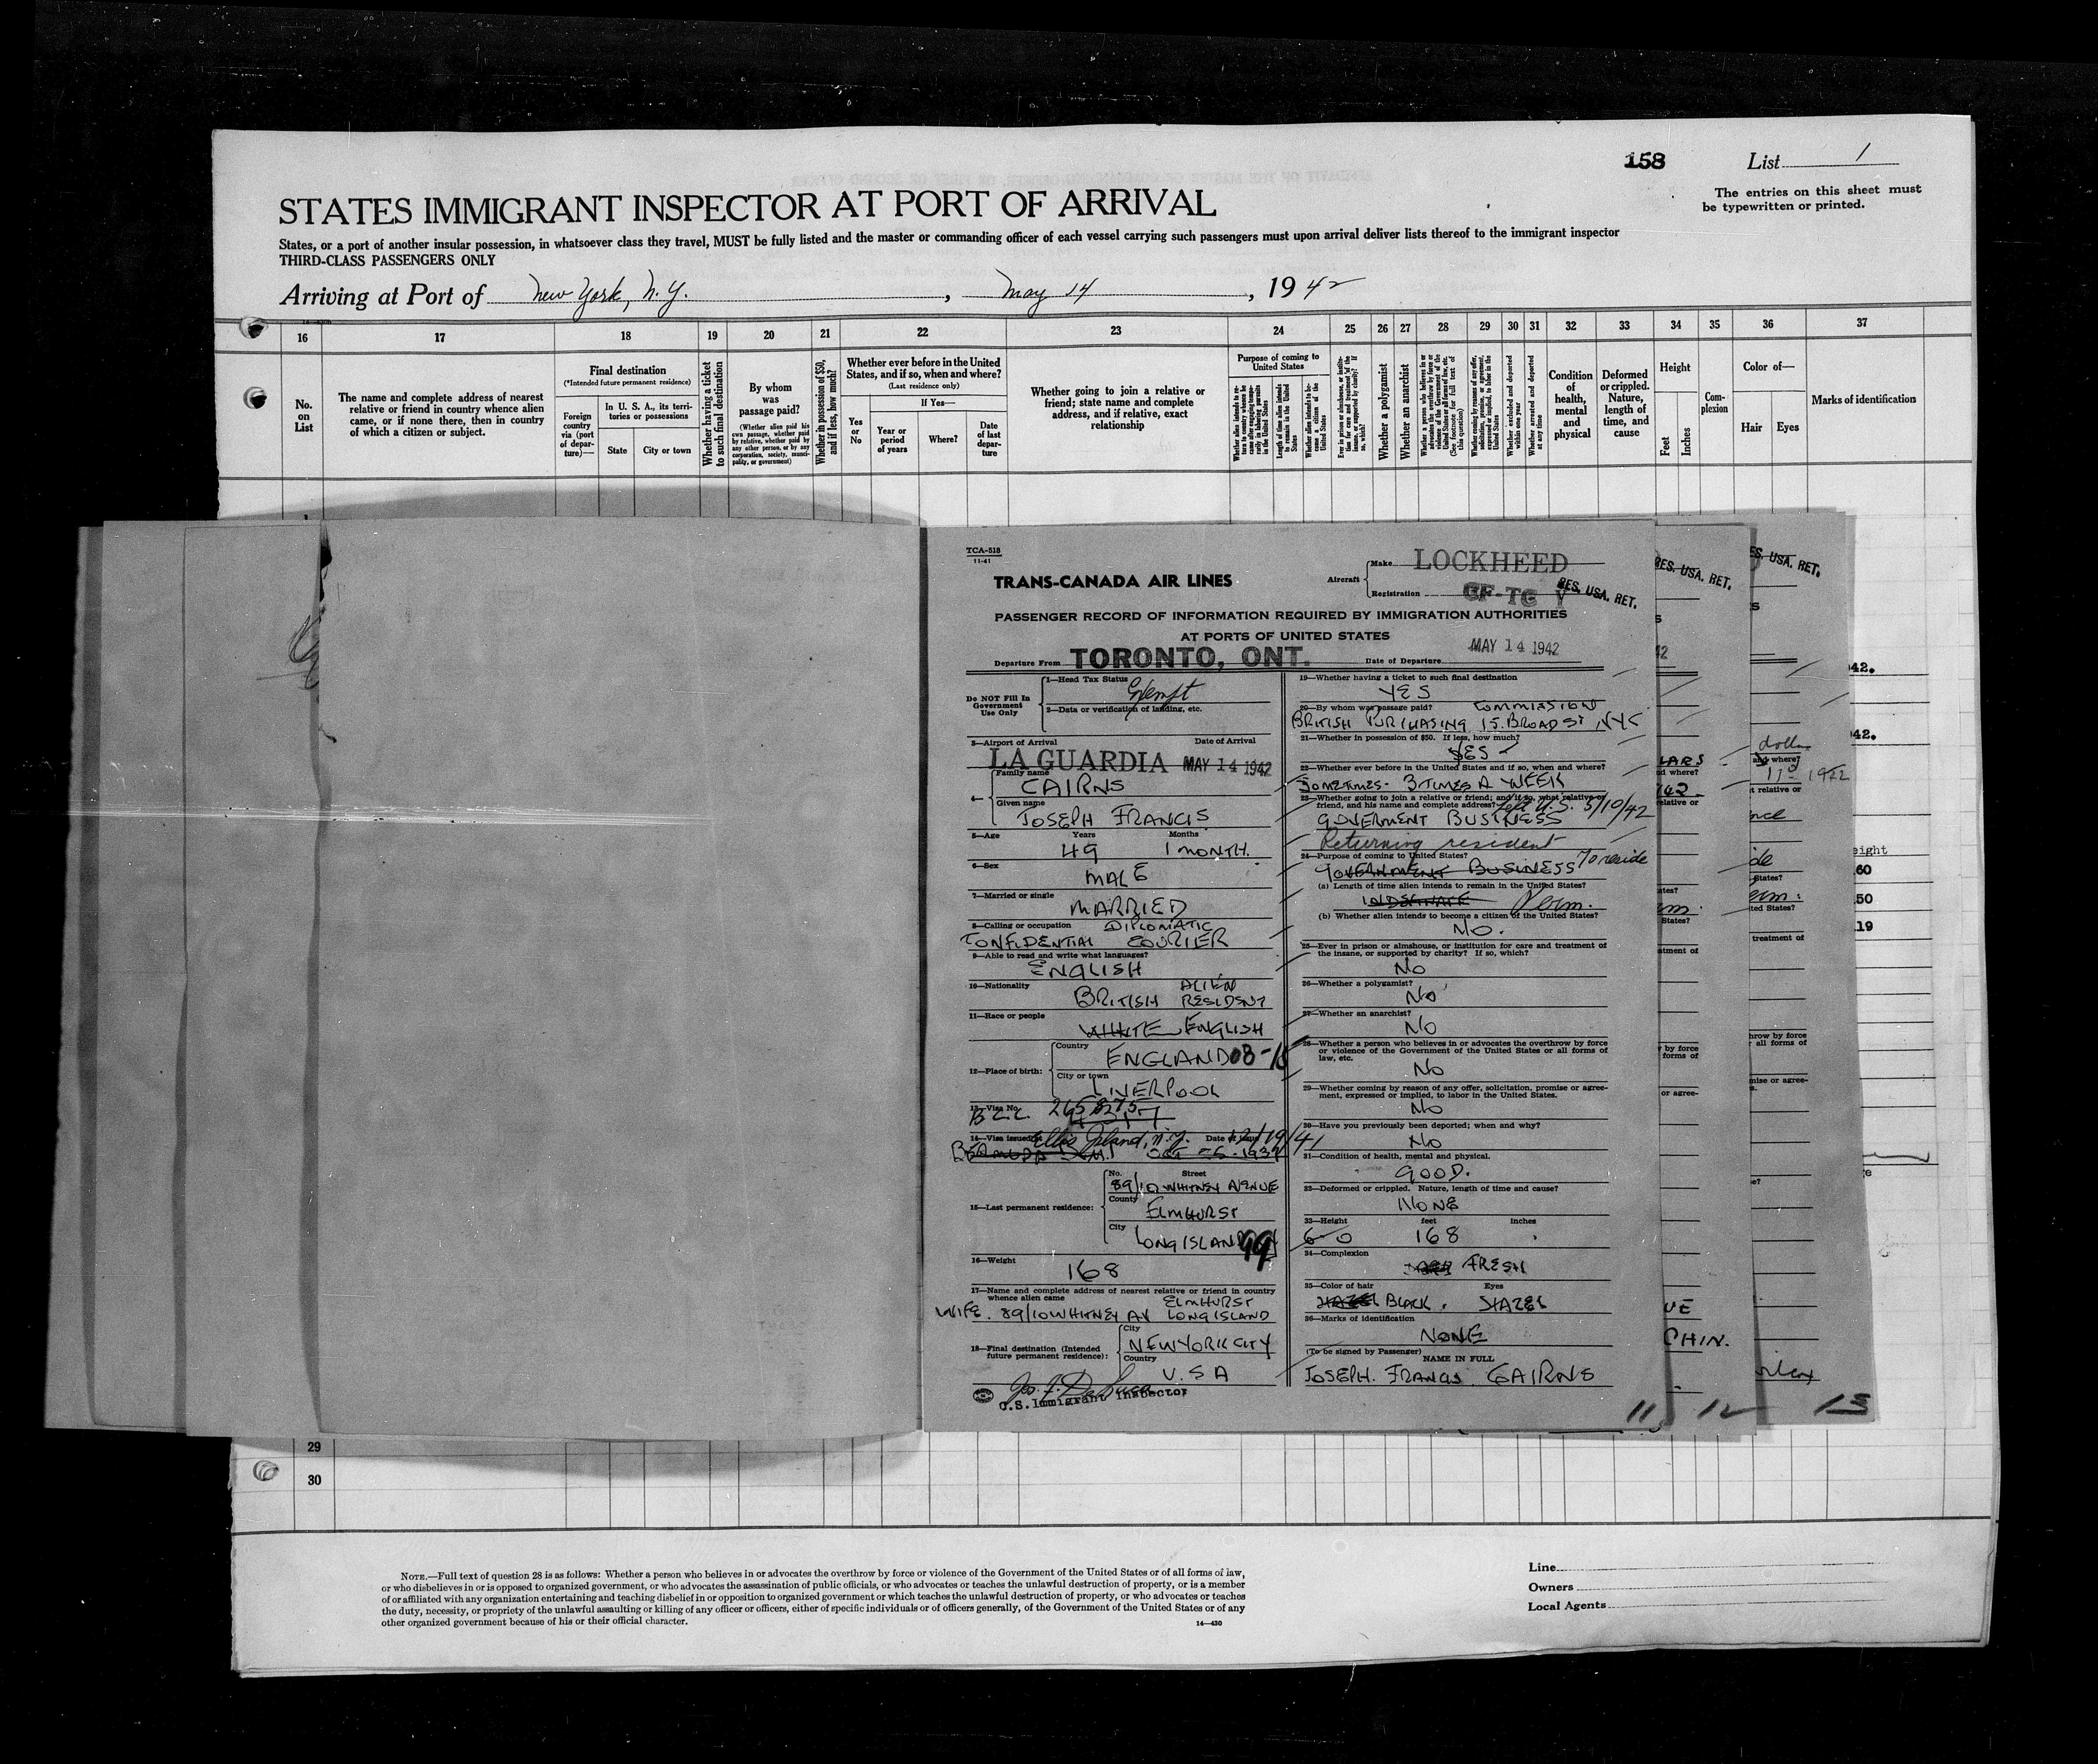 158
List 1
The entries on this sheet must
be typewritten or printed.
STATES IMMIGRANT INSPECTOR AT PORT OF ARRIVAL
States, or a port of another insular possession, in whatsoever class they travel, MUST be fully listed and the master or commanding officer of each vessel carrying such passengers must upon arrival deliver lists thereof to the immigrant inspector
THIRD-CLASS PASSENGERS ONLY
Arriving at Port of New York, N.Y. , May 14 , 1942
16 17 18 19 20 21 22 23 24 25 26 27 28 29 30 31 32 33 34 35 36 37
No.
on
List
The name and complete address of nearest
relative or friend in country whence alien
came, or if none there, then in country
of which a citizen or subject.
Final destination
(*Intended future permanent residence)
Foreign
country
via (port
of depar-
ture)—
In U. S. A., its terri-
tories or possessions
State
City or town
Whether having a ticket
to such final destination
By whom
was
passage paid?
(Whether alien paid his
own passage, whether paid
by relative, whether paid by
any other person, or by any
corporation, society, munici-
pality, or government)
Whether in possession of $50,
and if less, how much?
Whether ever before in the United
States, and if so, when and where?
(Last residence only)
Yes
or
No
If Yes—
Year or
period
of years
Where?
Date
of last
depar-
ture
Whether going to join a relative or
friend; state name and complete
address, and if relative, exact
relationship
Purpose of coming to
United States
Length of time alien intends
to remain in the United
States
Whether alien intends to be-
come a citizen of the
United States
Whether a polygamist
Whether an anarchist
Whether excluded and deported
within one year
Whether arrested and deported
at any time
Condition
of
health,
mental
and
physical
Deformed
or crippled.
Nature,
length of
time, and
cause
Height
Feet
Inches
Com-
plexion
Color of—
Hair
Eyes
Marks of identification
TCA-518
11-41
TRANS-CANADA AIR LINES
Aircraft
Make LOCKHEED
Registration CF-TC Y
RES. USA. RET.
PASSENGER RECORD OF INFORMATION REQUIRED BY IMMIGRATION AUTHORITIES
AT PORTS OF UNITED STATES
Departure From TORONTO, ONT.
Date of Departure MAY 14 1942
Do NOT Fill In
Government
Use Only
1—Head Tax Status Exempt
2—Data or verification of landing, etc.
3—Airport of Arrival Date of Arrival
LA GUARDIA MAY 14 1942
4— Family name
CAIRNS
Given name
JOSEPH FRANCIS
5—Age Years Months
49 1 MONTH.
6—Sex
MALE
7—Married or single
MARRIED
8—Calling or occupation DIPLOMATIC
CONFIDENTIAL COURIER
9—Able to read and write what languages?
ENGLISH
10—Nationality ALIEN
BRITISH RESIDENT
11—Race or people
WHITE ENGLISH
12—Place of birth:
Country
ENGLAND 03-1
City or town
LIVERPOOL
13—Visa No.
14—Visa issued at Ellis Island, N.Y. Date of issue 12/19/41
15—Last permanent residence:
No. Street
89/10 WHITNEY AVENUE
County
ELMHURST
City
LONG ISLAND 99
16—Weight
168
17—Name and complete address of nearest relative or friend in country
whence alien came ELMHURST
WIFE. 89/10 WHITNEY AV LONG ISLAND
18—Final destination (Intended
future permanent residence):
City
NEW YORK CITY
Country
U.S.A
U.S. Immigrant Inspector
19—Whether having a ticket to such final destination
YES
20—By whom was passage paid? COMMISSION
BRITISH PURCHASING 15. BROAD ST NYC
21—Whether in possession of $50. If less, how much?
YES
22—Whether ever before in the United States and if so, when and where?
SOMETIMES. 3 TIMES A WEEK
23—Whether going to join a relative or friend; and if so, what relative or
friend, and his name and complete address? Left U.S. 5/10/42
GOVERMENT BUSINESS
Returning resident
24—Purpose of coming to United States? To reside
GOVERNMENT BUSINESS
(a) Length of time alien intends to remain in the United States?
Perm.
(b) Whether alien intends to become a citizen of the United States?
NO.
25—Ever in prison or almshouse, or institution for care and treatment of
the insane, or supported by charity? If so, which?
NO
26—Whether a polygamist?
NO
27—Whether an anarchist?
NO
28—Whether a person who believes in or advocates the overthrow by force
or violence of the Government of the United States or all forms of
law, etc.
NO
29—Whether coming by reason of any offer, solicitation, promise or agree-
ment, expressed or implied, to labor in the United States.
NO
30—Have you previously been deported; when and why?
NO
31—Condition of health, mental and physical.
GOOD.
32—Deformed or crippled. Nature, length of time and cause?
NONE
33—Height feet inches
6-0 168
34—Complexion
FRESH
35—Color of hair Eyes
HAZEL BLACK. HAZEL
36—Marks of identification
NONE
(To be signed by Passenger)
NAME IN FULL
JOSEPH. FRANCIS. CAIRNS
11 12 13
RES. USA. RET.
ES. USA. RET.
CHIN.
29
30
NOTE.—Full text of question 28 is as follows: Whether a person who believes in or advocates the overthrow by force or violence of the Government of the United States or of all forms of law,
or who disbelieves in or is opposed to organized government, or who advocates the assassination of public officials, or who advocates or teaches the unlawful destruction of property, or is a member
of or affiliated with any organization entertaining and teaching disbelief in or opposition to organized government or which teaches the unlawful destruction of property, or who advocates or teaches
the duty, necessity, or propriety of the unlawful assaulting or killing of any officer or officers, either of specific individuals or of officers generally, of the Government of the United States or of any
other organized government because of his or their official character.
14—430
Line
Owners
Local Agents